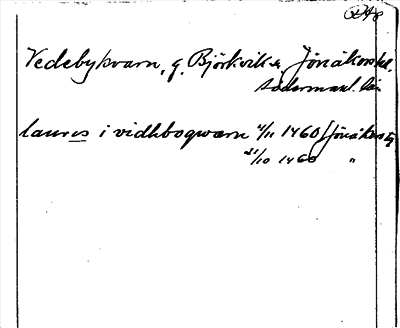 Vedebykvarn, g. Björkvik s, Jönåkers hd.
Södermanl. län
laur<u>es</u> i vidhbogwarn 4/11 1460 [Jönåkers
21/10 1460 "